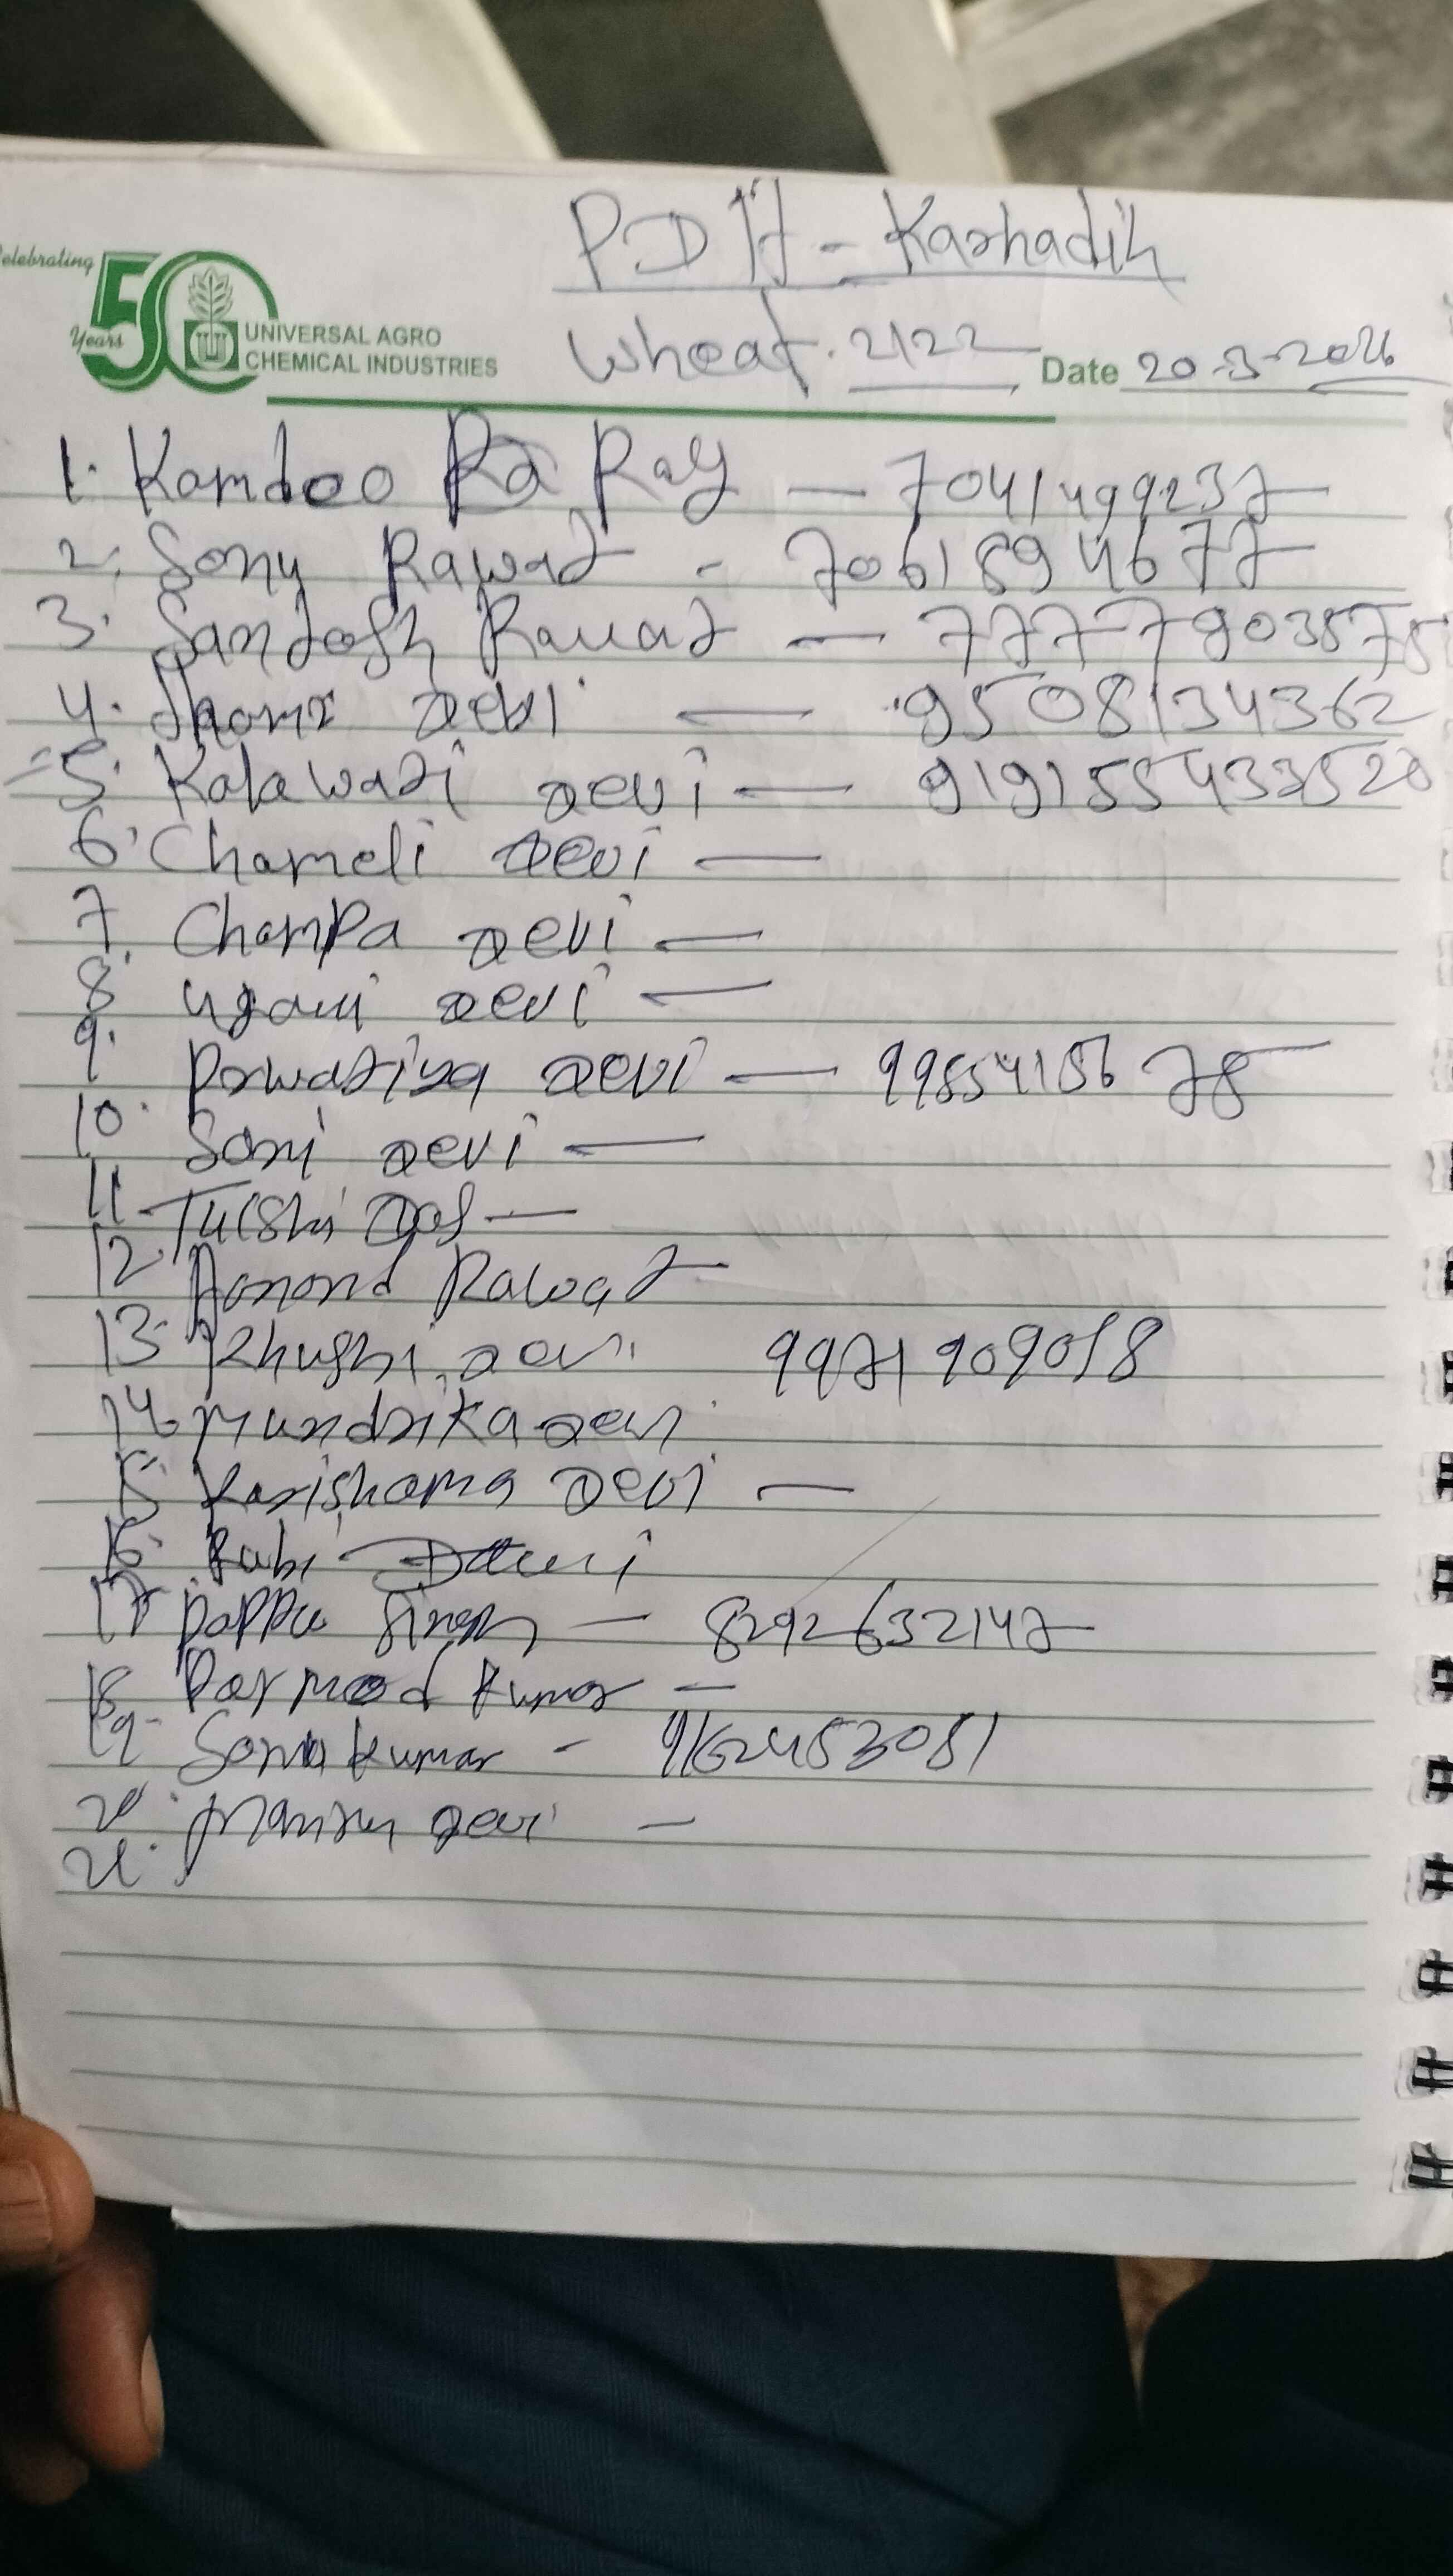 PDH - Karhadih
Celebrating 50 Years
UNIVERSAL AGRO
CHEMICAL INDUSTRIES
Wheat. 2122
Date 20-3-2026
1. Kamdeo Ray - 7041499237
2. Sony Rawat - 7061894677
3. Santosh Rawat - 7777903575
4. Devi - 9508134362
5. Kalawati Devi - 919155433520
6. Chameli Devi -
7. Champa Devi -
8. Devi -
9. Devi - 9985415678
10. Soni Devi -
11. Tulshi Das -
12. Aanand Rawat
13. Khushi Devi 9971909018
14. Mundrika Devi
15. Karishama Devi -
16. Rubi Devi
17. Pappu Singh - 8292632147
18. Parmod Kumar -
19. Kumar - 9162453081
20. Devi -
21.